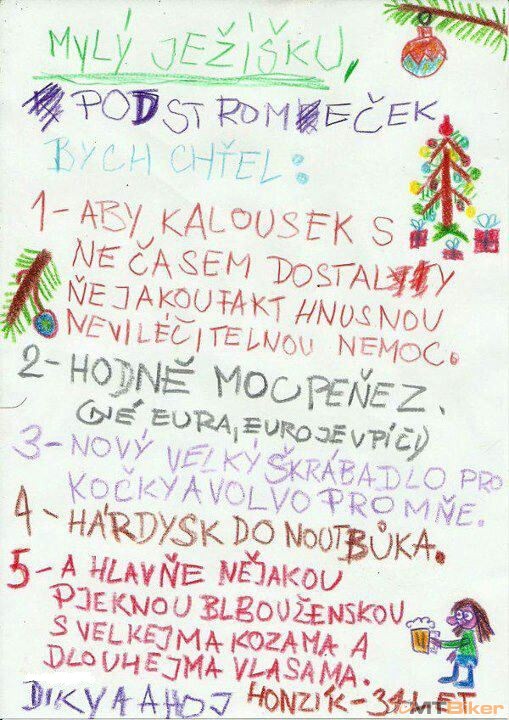 MYLÝ JEŽÍŠKU,
POD STROMEČEK
BYCH CHŤEL:
1-ABY KALOUSEK S
NEČASEM DOSTALY
ŇEJAKOU FAKT HNUSNOU
NEVILÉČITELNOU NEMOC.
2-HODNĚ MOC PEŇEZ.
(NÉ EURA, EURO JE V PÍČI)
3-NOVÝ VELKÝ ŠKRÁBADLO PRO
KOČKY A VOLVO PRO MŇE.
4-HÁRDYSK DO NOUTBŮKA.
5-A HLAVŇE NĚJAKOU
PJEKNOU BLBOU ŽENSKOU
S VELKEJMA KOZAMA A
DLOUHEJMA VLASAMA.
DIKY A AHOJ HONZÍK-34 LET
MTBiker